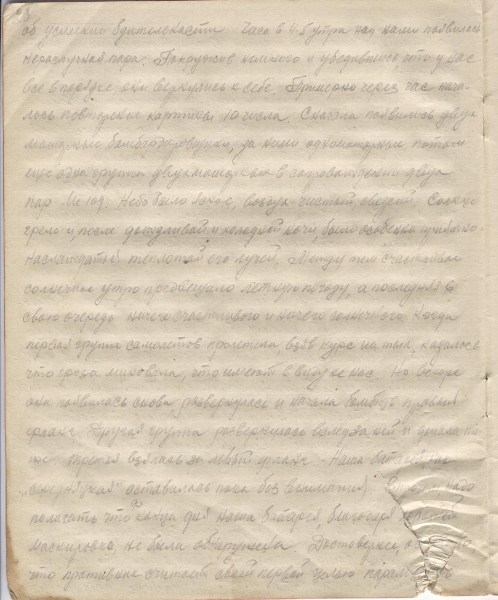 об усилении бдительности. Часа в 4-5 утра над нами появилась
неразлучная пара. Покружив немного и убедившись что у нас
все в порядке они вернулись к себе. Примерно через час нача-
лось повторение картины 10 числа. Сначала появились двух
моторные бомбардировщики, за ними одномоторные потом
еще одна группа двухмоторных в сопровождении двух
пар Ме 109. Небо было ясное, воздух чистый свежий. Солнце
грело и после дождливой и холодной ночи, было особенно приятно
наслаждаться теплотой его лучей. Между тем счастливое
солнечное утро предвещало летную погоду, а последняя в
свою очередь ничего счастливого и ничего солнечного. Когда
первая группа самолетов пролетела, взяв курс на тыл, казалось
что гроза миновала, что имеют в виду не нас. Но вскоре
она появилась снова развернулась и начала бомбить правый
фланг. Другая группа развернулась вслед за ней и
третья взялась за левый фланг. Наша батарея как
"середняцкая" оставалась пока без внимания. надо
полагать что конца дня наша батарея, благодаря
маскировке, не была обнаружена. Достоверно,
что противник считает своей первой целью